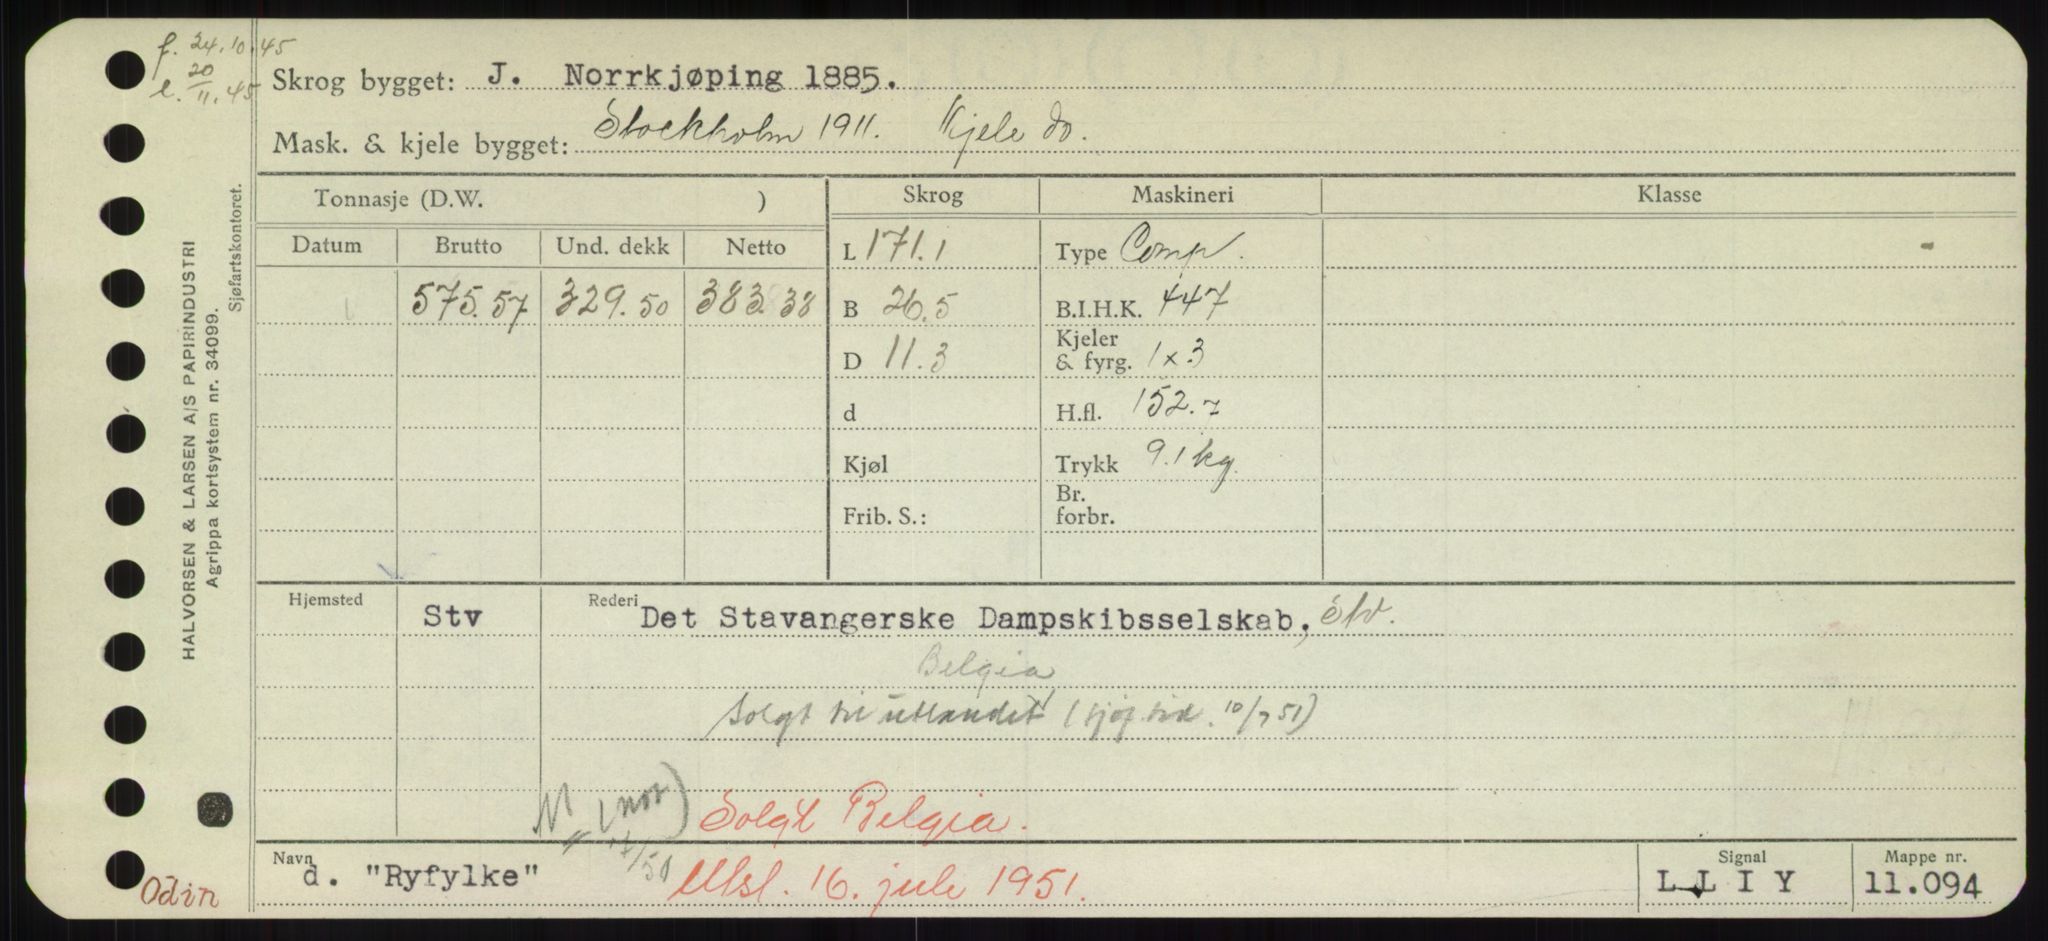 f. 24.10.45
l. 20/11.45
Skrog bygget: J. Norrkjøping 1885.
Mask. & kjele bygget: Stockholm 1911. Kjele do.
Tonnasje (D.W. ) Skrog Maskineri Klasse
Datum Brutto Und. dekk Netto
575.57 329.50 383.38
L 171.1
B 26.5
D 11.3
d
Kjøl
Frib. S.:
Type Comp.
B.I.H.K. 447
Kjeler & fyrg. 1x3
H.fl. 152.7
Trykk 9.1 kg.
Br. forbr.
Hjemsted Stv Rederi Det Stavangerske Dampskibsselskab, Stv.
Belgia
Solgt til utlandet (sjøf. tid. 10/7 51)
(nov)
Solgt Belgia.
Navn d. "Ryfylke"
Utsl. 16. juli 1951.
Signal LLIY
Mappe nr. 11.094
Odin
HALVORSEN & LARSEN A/S PAPIRINDUSTRI
Agrippa kortsystem nr. 34099.
Sjøfartskontoret.